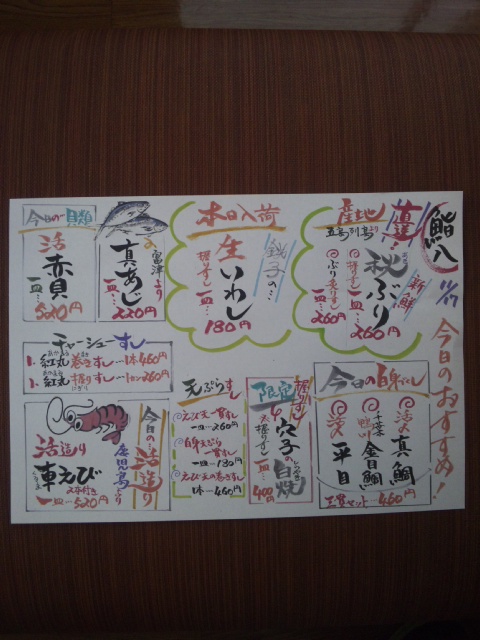 鮨八
11/17
今日のおすすめ!
産地直送!
五島列島より
新鮮
秋ぶり
握りすし
一皿…260円
ぶり炙りすし
一皿…260円
本日入荷
銚子の…
生いわし
握りすし
一皿…180円
富津より
真あじ
一皿…220円
今日の貝類
活赤貝
一皿…520円
チャーシューすし
1、紅丸巻きすし…1本460円
1、紅丸握りすし…1カン260円
今日の白身すし
活〆真鯛
千葉
鴨川
金目鯛
活〆平目
三貫セット…460円
限定
握りすし
穴子の白焼
大握りすし
一皿…400円
天ぷらすし
えび天一貫すし
一皿…260円
白身天ぷら一貫すし
一皿…180円
えび天の巻きすし
1本…460円
今日の活〆造り
鹿児島より
活造り
車えび
一皿…520円